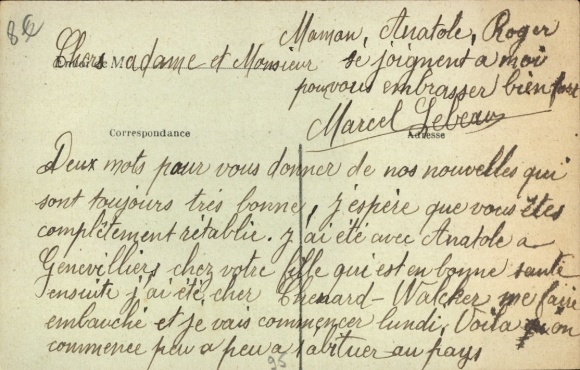 Chers Madame et Monsieur
Deux mots pour vous donner de nos nouvelles qui
sont toujours très bonne, j'espère que vous êtes
complètement rétablie. j'ai été avec Anatole a
Genevilliers chez votre fille qui est en bonne santé
ensuite j'ai été cher Chenard-Walcker me faire
embauché et je vais commencer lundi. Voila on
commence peu a peu a s'abituer au pays
Maman, Anatole, Roger
se joignent a moi
pour vous embrasser bien fort
Marcel Lebeau
Correspondance
Adresse